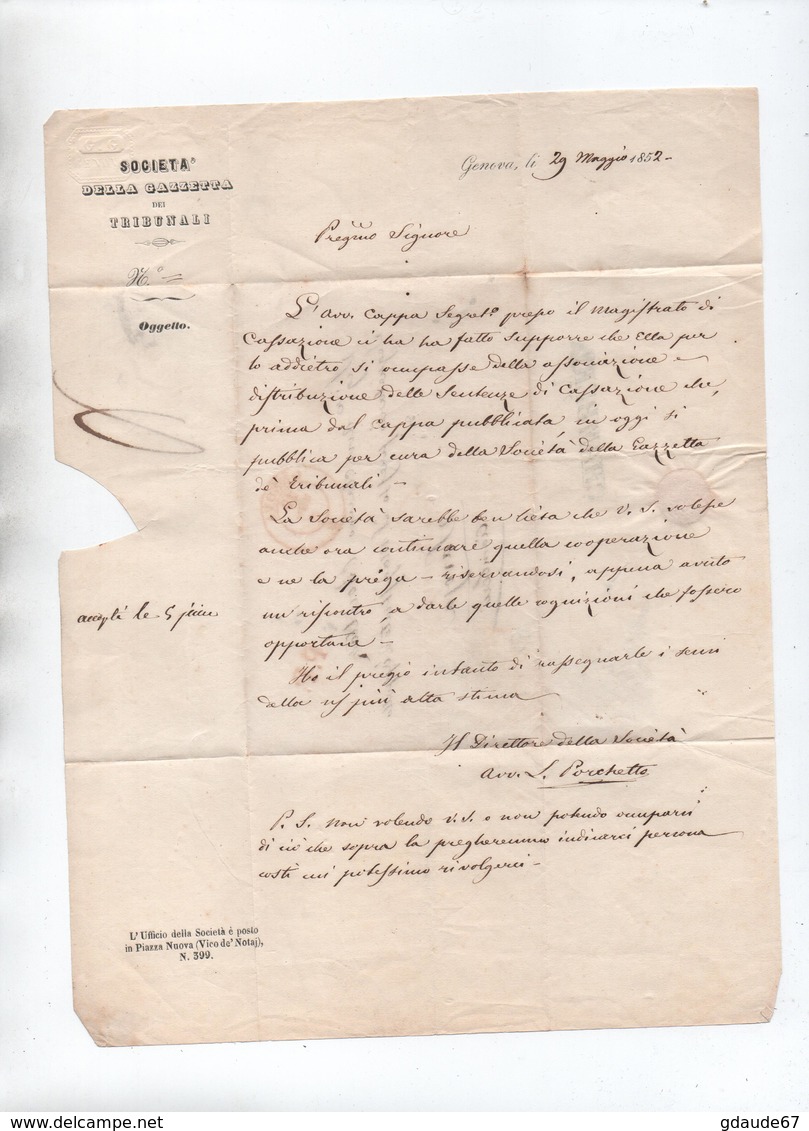 SOCIETA'
DELLA GAZZETTA
DEI
TRIBUNALI
N.° =
Oggetto.
Genova, li 29 Maggio 1852-
Pregmo Signore
L'Avv. Cappa Segret.° presso il Magistrato di
Cassazione ci ha ha fatto supporre che Ella per
lo addietro si occupasse della associazione e
distribuzione delle Sentenze di Cassazione che,
prima dal Cappa pubblicata, in oggi si
pubblica per cura della Società della Gazzetta
de' Tribunali -
La Società sarebbe ben lieta che V. S. volesse
anche ora continuare quella cooperazione
e ne la prega - riservandosi, appena avuto
un riscontro, a darle quelle cognizioni che fossero
opportune -
Ho il pregio intanto di rassegnarle i sensi
della più alta stima
Il Direttore della Società
Avv. L. Porchetto
accepté le 5 juin
P. S. Non volendo V. S. o non potendo occuparsi
di ciò che sopra la pregheremmo indicarci persona
costì cui potessimo rivolgerci -
L'Ufficio della Società è posto
in Piazza Nuova (Vico de' Notaj),
N. 399.
delcampe.net
gdaude67